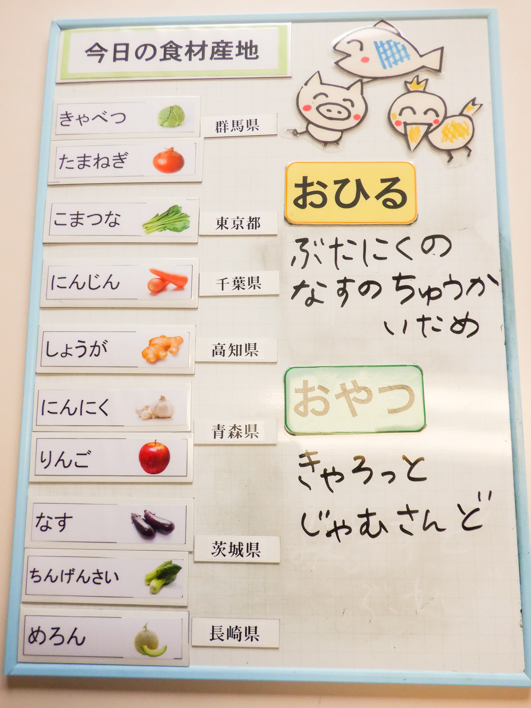 今日の食材産地
きゃべつ
群馬県
たまねぎ
こまつな
東京都
にんじん
千葉県
しょうが
高知県
にんにく
青森県
りんご
なす
茨城県
ちんげんさい
めろん
長崎県
おひる
ぶたにくの
なすのちゅうか
いため
おやつ
きゃろっと
じゃむさんど